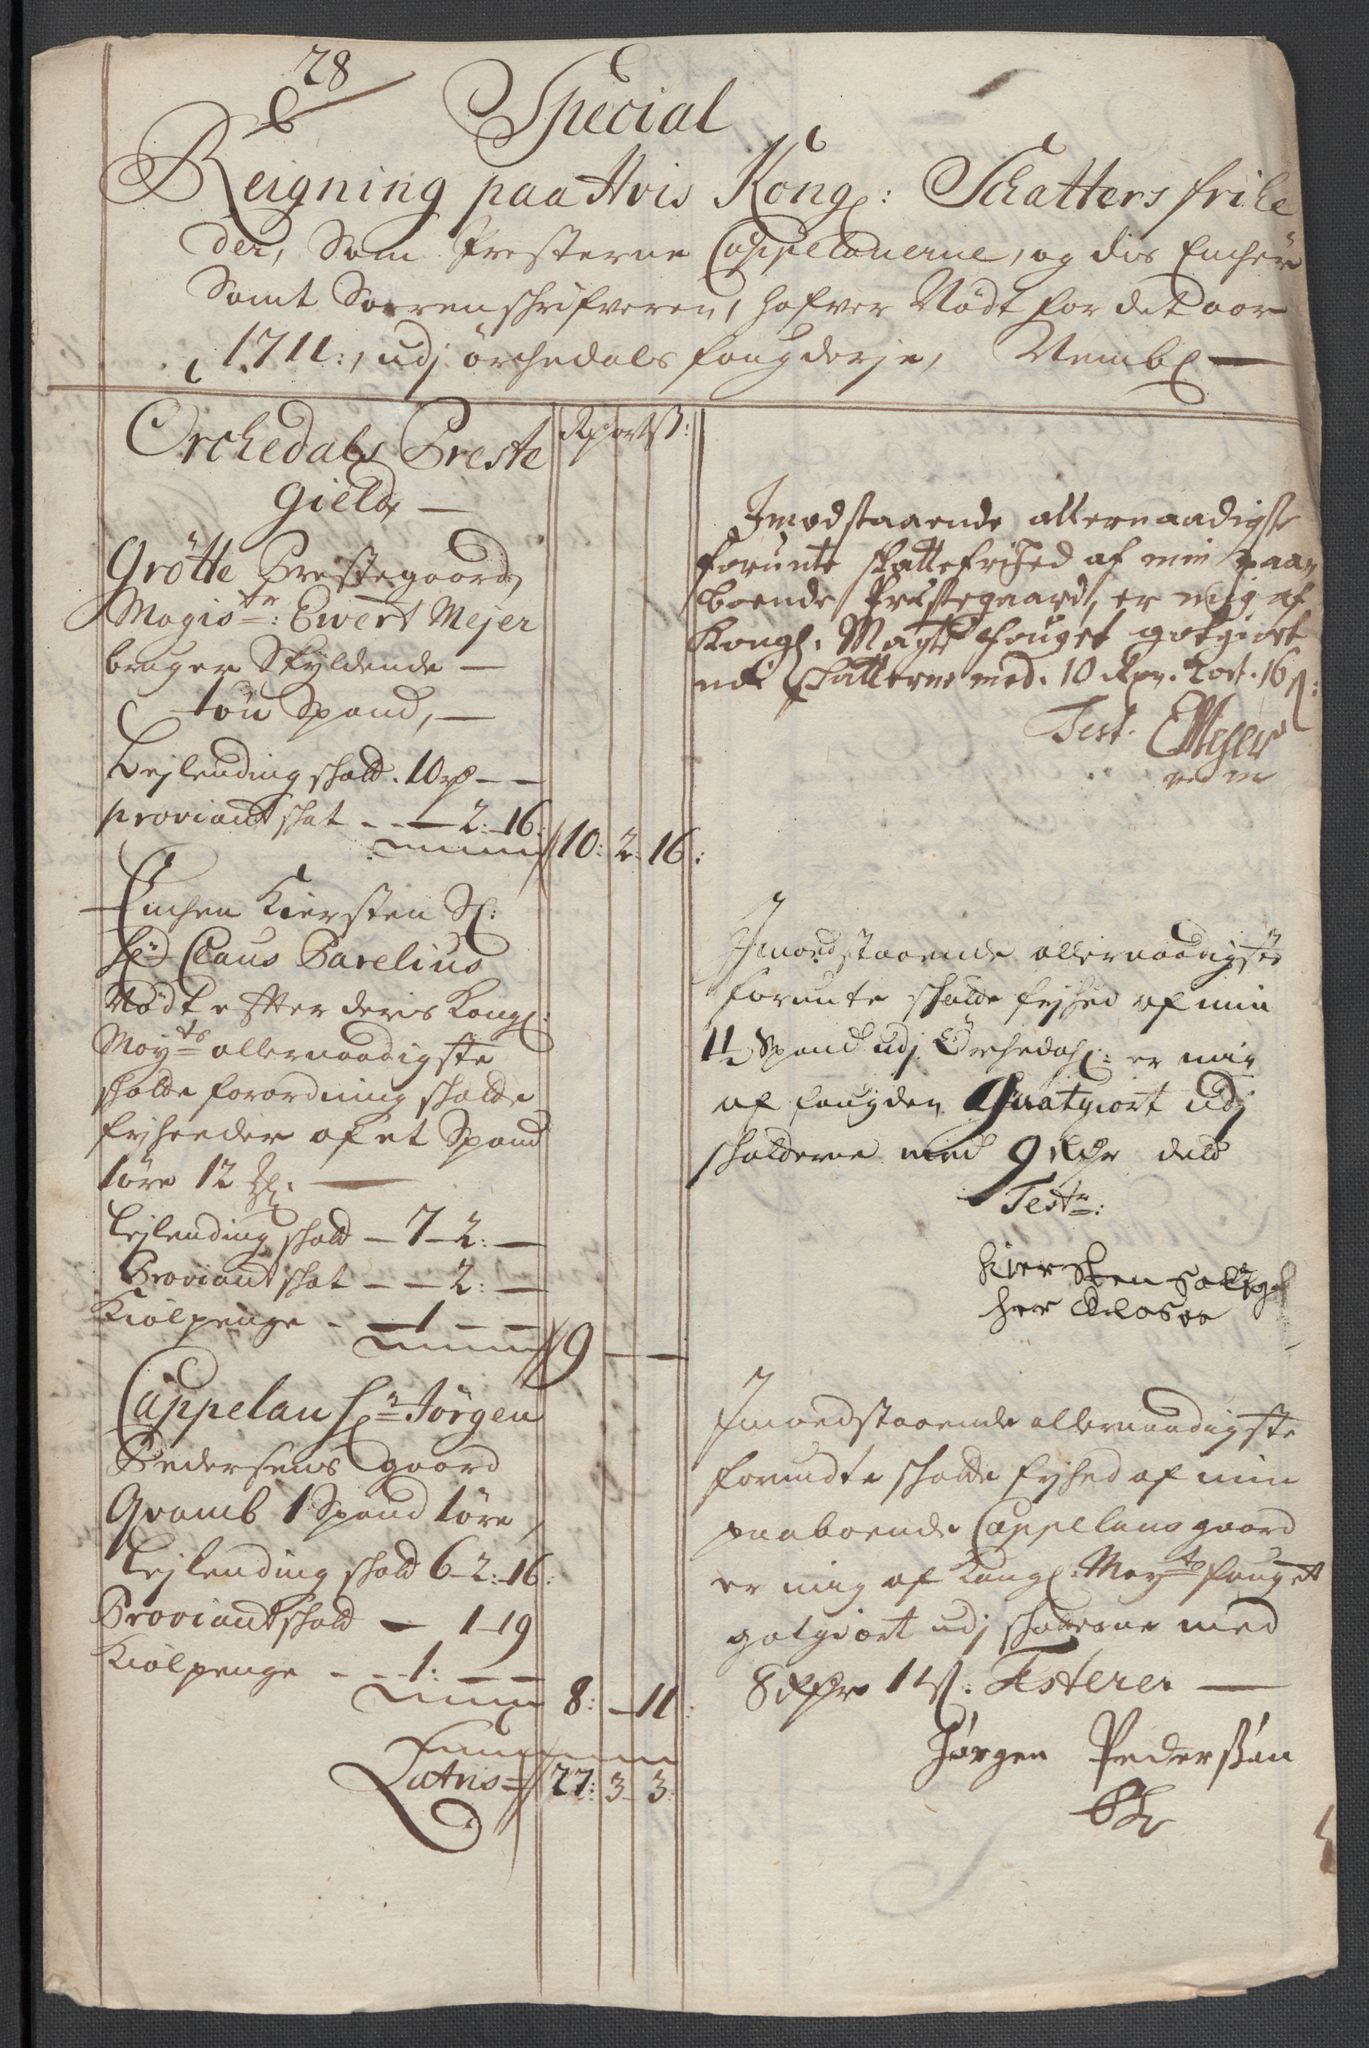 28
Special
Reigning paa Hvis Kongl: Schatters frihe
der, Som Presterne Cappelanerne, og dis Encher
Samt Sorrenschrifveren, hafver Nødt for det aar
1711:, udj Örchedals fougderje, Nembl
Orchedals Preste
Gield
Rdr ort ß:
Grötte Prestegaard,
Magistr: Ewert Mejer
bruger Skyldende
Spand,
Lejlending schatt. 10 rd
proviant schat 2: 16:
10: 2: 16:
Imodstaaende allernaadigst
forunte skattefrihed af min paa
boende Præstegaard, er mig af
Kongl. Mayts fouget gotgiort
schatterne med. 10 Rdr. 2 ort. 16 ß:
Test. EMejer
Enchen Kiersten Sl:
Hr Claus Parelius
Nødt effter deris Kongl:
Mayts allernaadigste
schatte forordning schatte
fryheeder af et Spand
1 øre 12
Lejlending schatt 7 2:
Proviant schat 2:
Kiølpenge 1
9
Imodstaaende allernaadigste
forunte schatte fryhed af min
1½ Spand udj Örchedahl: er mig
af fougden Guatgiort udj
schatterne med 9 Rdr
Testr:
Kiersten Salig
her Clasøe
Cappelan Hr Jörgen
Pedersens gaard
Qvamb 1 Spand 1 øre,
Lejlending schatt 6 2: 16:
Proviantschatt 1 19
Kiølpenge 1:
8: 11:
Imoedstaaende allernaadigste
forundte schatte fryhed af min
paaboende Cappelans gaard
er mig af Kongl: Mayts fouget
gotgiort udj schatterne med
8 Rdr 11 ß: Testerer
Jørgen Pederßøn
Latris 27: 3 3: